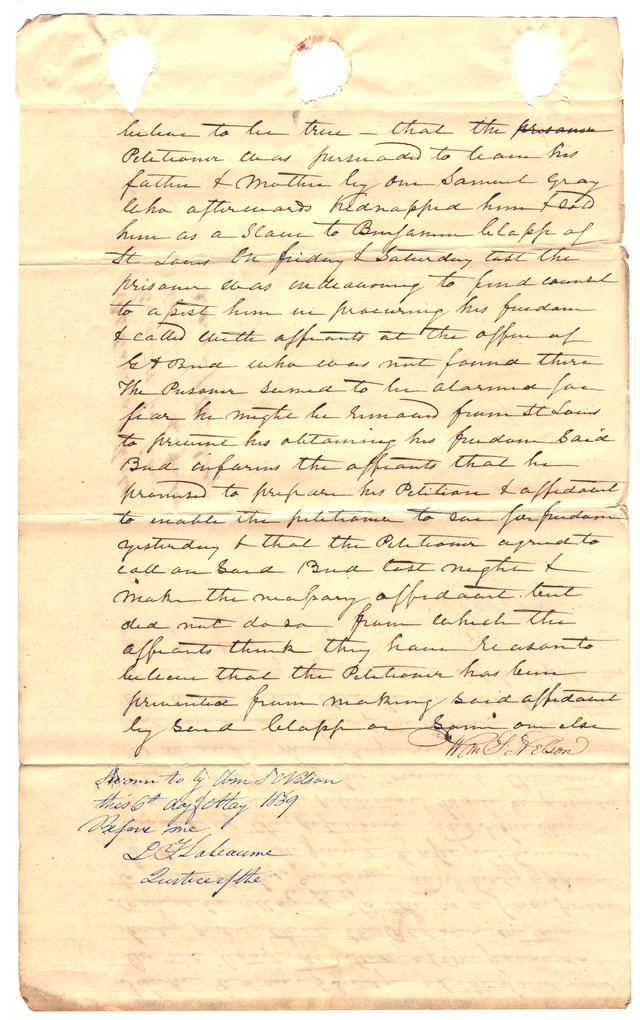 believe to be true – that the prisoner
Petitioner was persuaded to leave his
father & Mother by one Samuel Gray
who afterwards Kidnapped him & sold
him as a Slave to Benjamin Clapp of
St Louis On friday & Saturday last the
prisoner was endeavoring to find counsel
to assist him in procuring his freedom
& called with affiants at the office of
G A Bird who was not found there
The Prisoner seemed to be alarmed for
fear he might be removed from St Louis
to prevent his obtaining his freedom Said
Bird informs the affiants that he
promised to prepare his Petition & affidavit
to enable the petitioner to sue for freedom
yesterday & that the Petitioner agreed to
call on Said Bird last night &
make the necessary affidavit but
did not do so from which the
affiants think they have reason to
believe that the Petitioner has been
prevented from making said affidavit
by said Clapp or Some one else
Wm S. Nelson
Sworn to by Wm S Nelson
this 6th day of May 1839
Before me
L F Labeaume
Justice of the